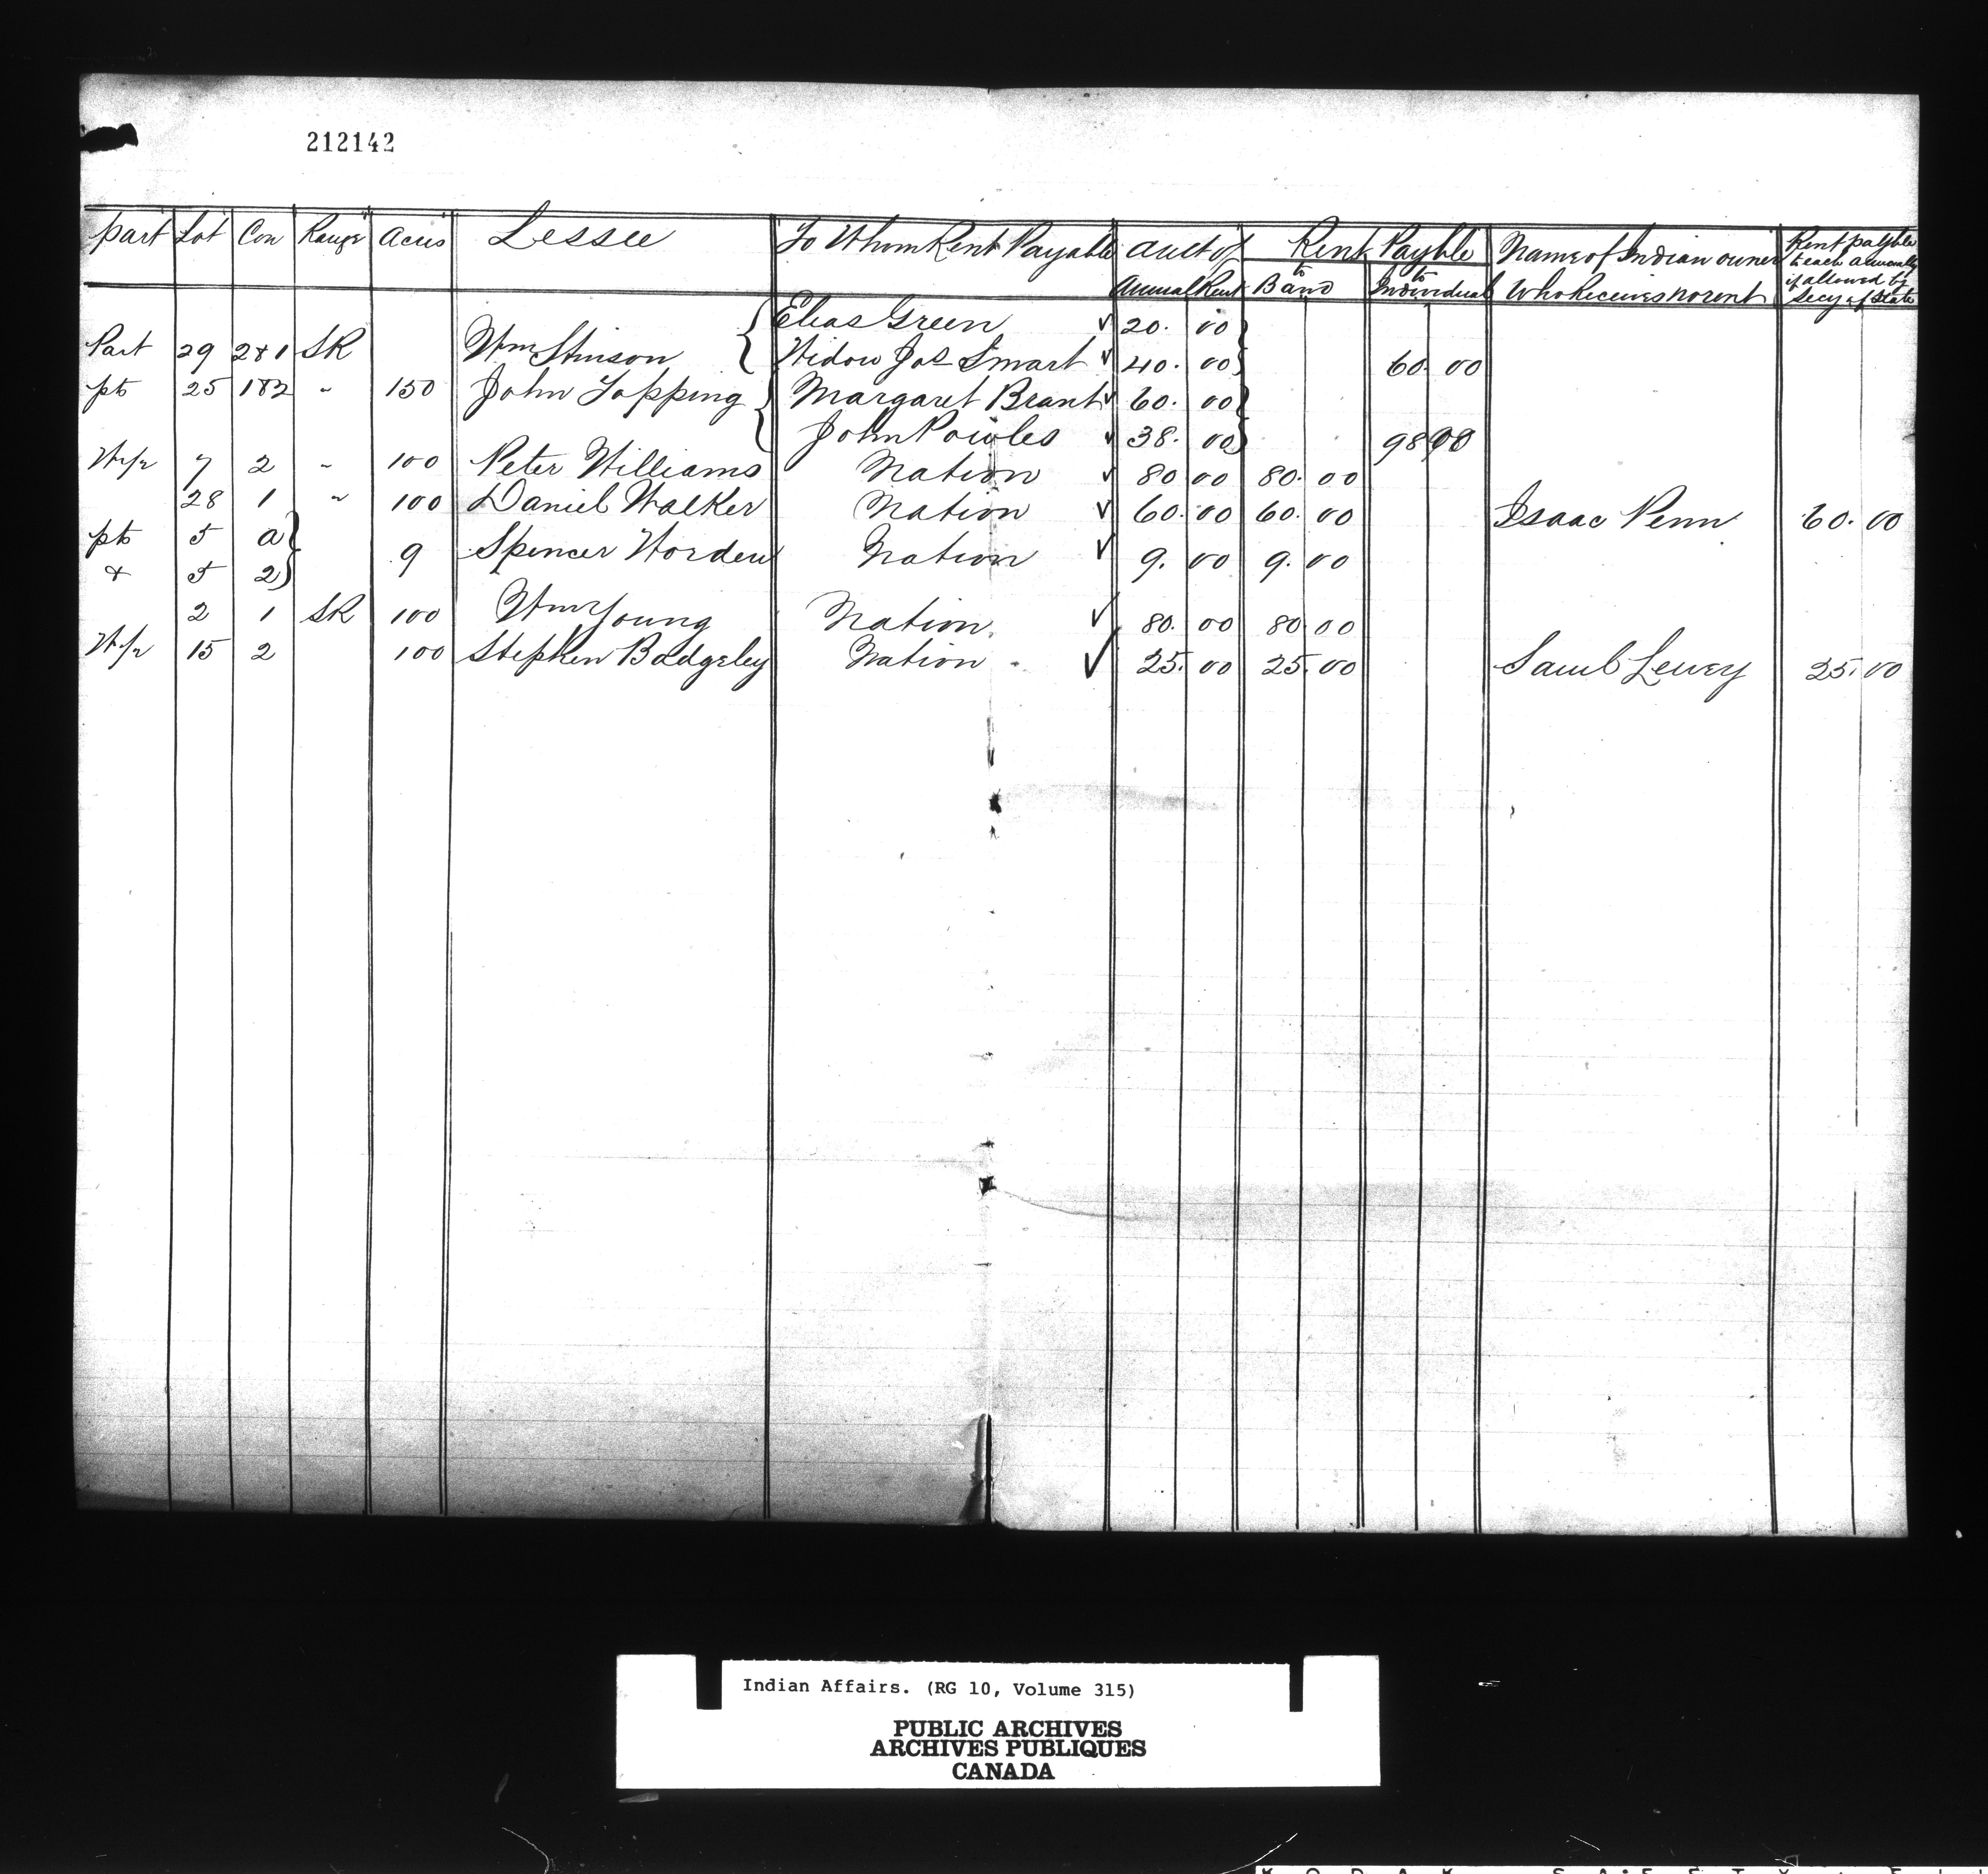 212142
part Lot Con Range Acres Lessee To Whom Rent Payable amt of Rent Payble Name of Indian owner Rent payble
to each annually
Annual Rent to Band to Individual Who Receives no rent if allowed by
Secy of State
Elias Green ✓ 20. 00
Part 29 2&1 SR Wm Stinson Widow Jos Smart ✓ 40. 00 60. 00
pts 25 1&2 " 150 John Topping Margaret Brant ✓ 60. 00
John Powles ✓ 38. 00 98 00
W1/2 7 2 " 100 Peter Williams Nation ✓ 80 00 80. 00
28 1 " 100 Daniel Walker Nation ✓ 60. 00 60. 00 Isaac Penn 60. 00
pts 5 a
9 Spencer Worden Nation ✓ 9. 00 9. 00
& 5 2
2 1 SR 100 Wm Young Nation ✓ 80. 00 80 00
W1/2 15 2 100 Stephen Badgeley Nation ✓ 25. 00 25. 00 Saml Lewey 25. 00
Indian Affairs. (RG 10, Volume 315)
PUBLIC ARCHIVES
ARCHIVES PUBLIQUES
CANADA